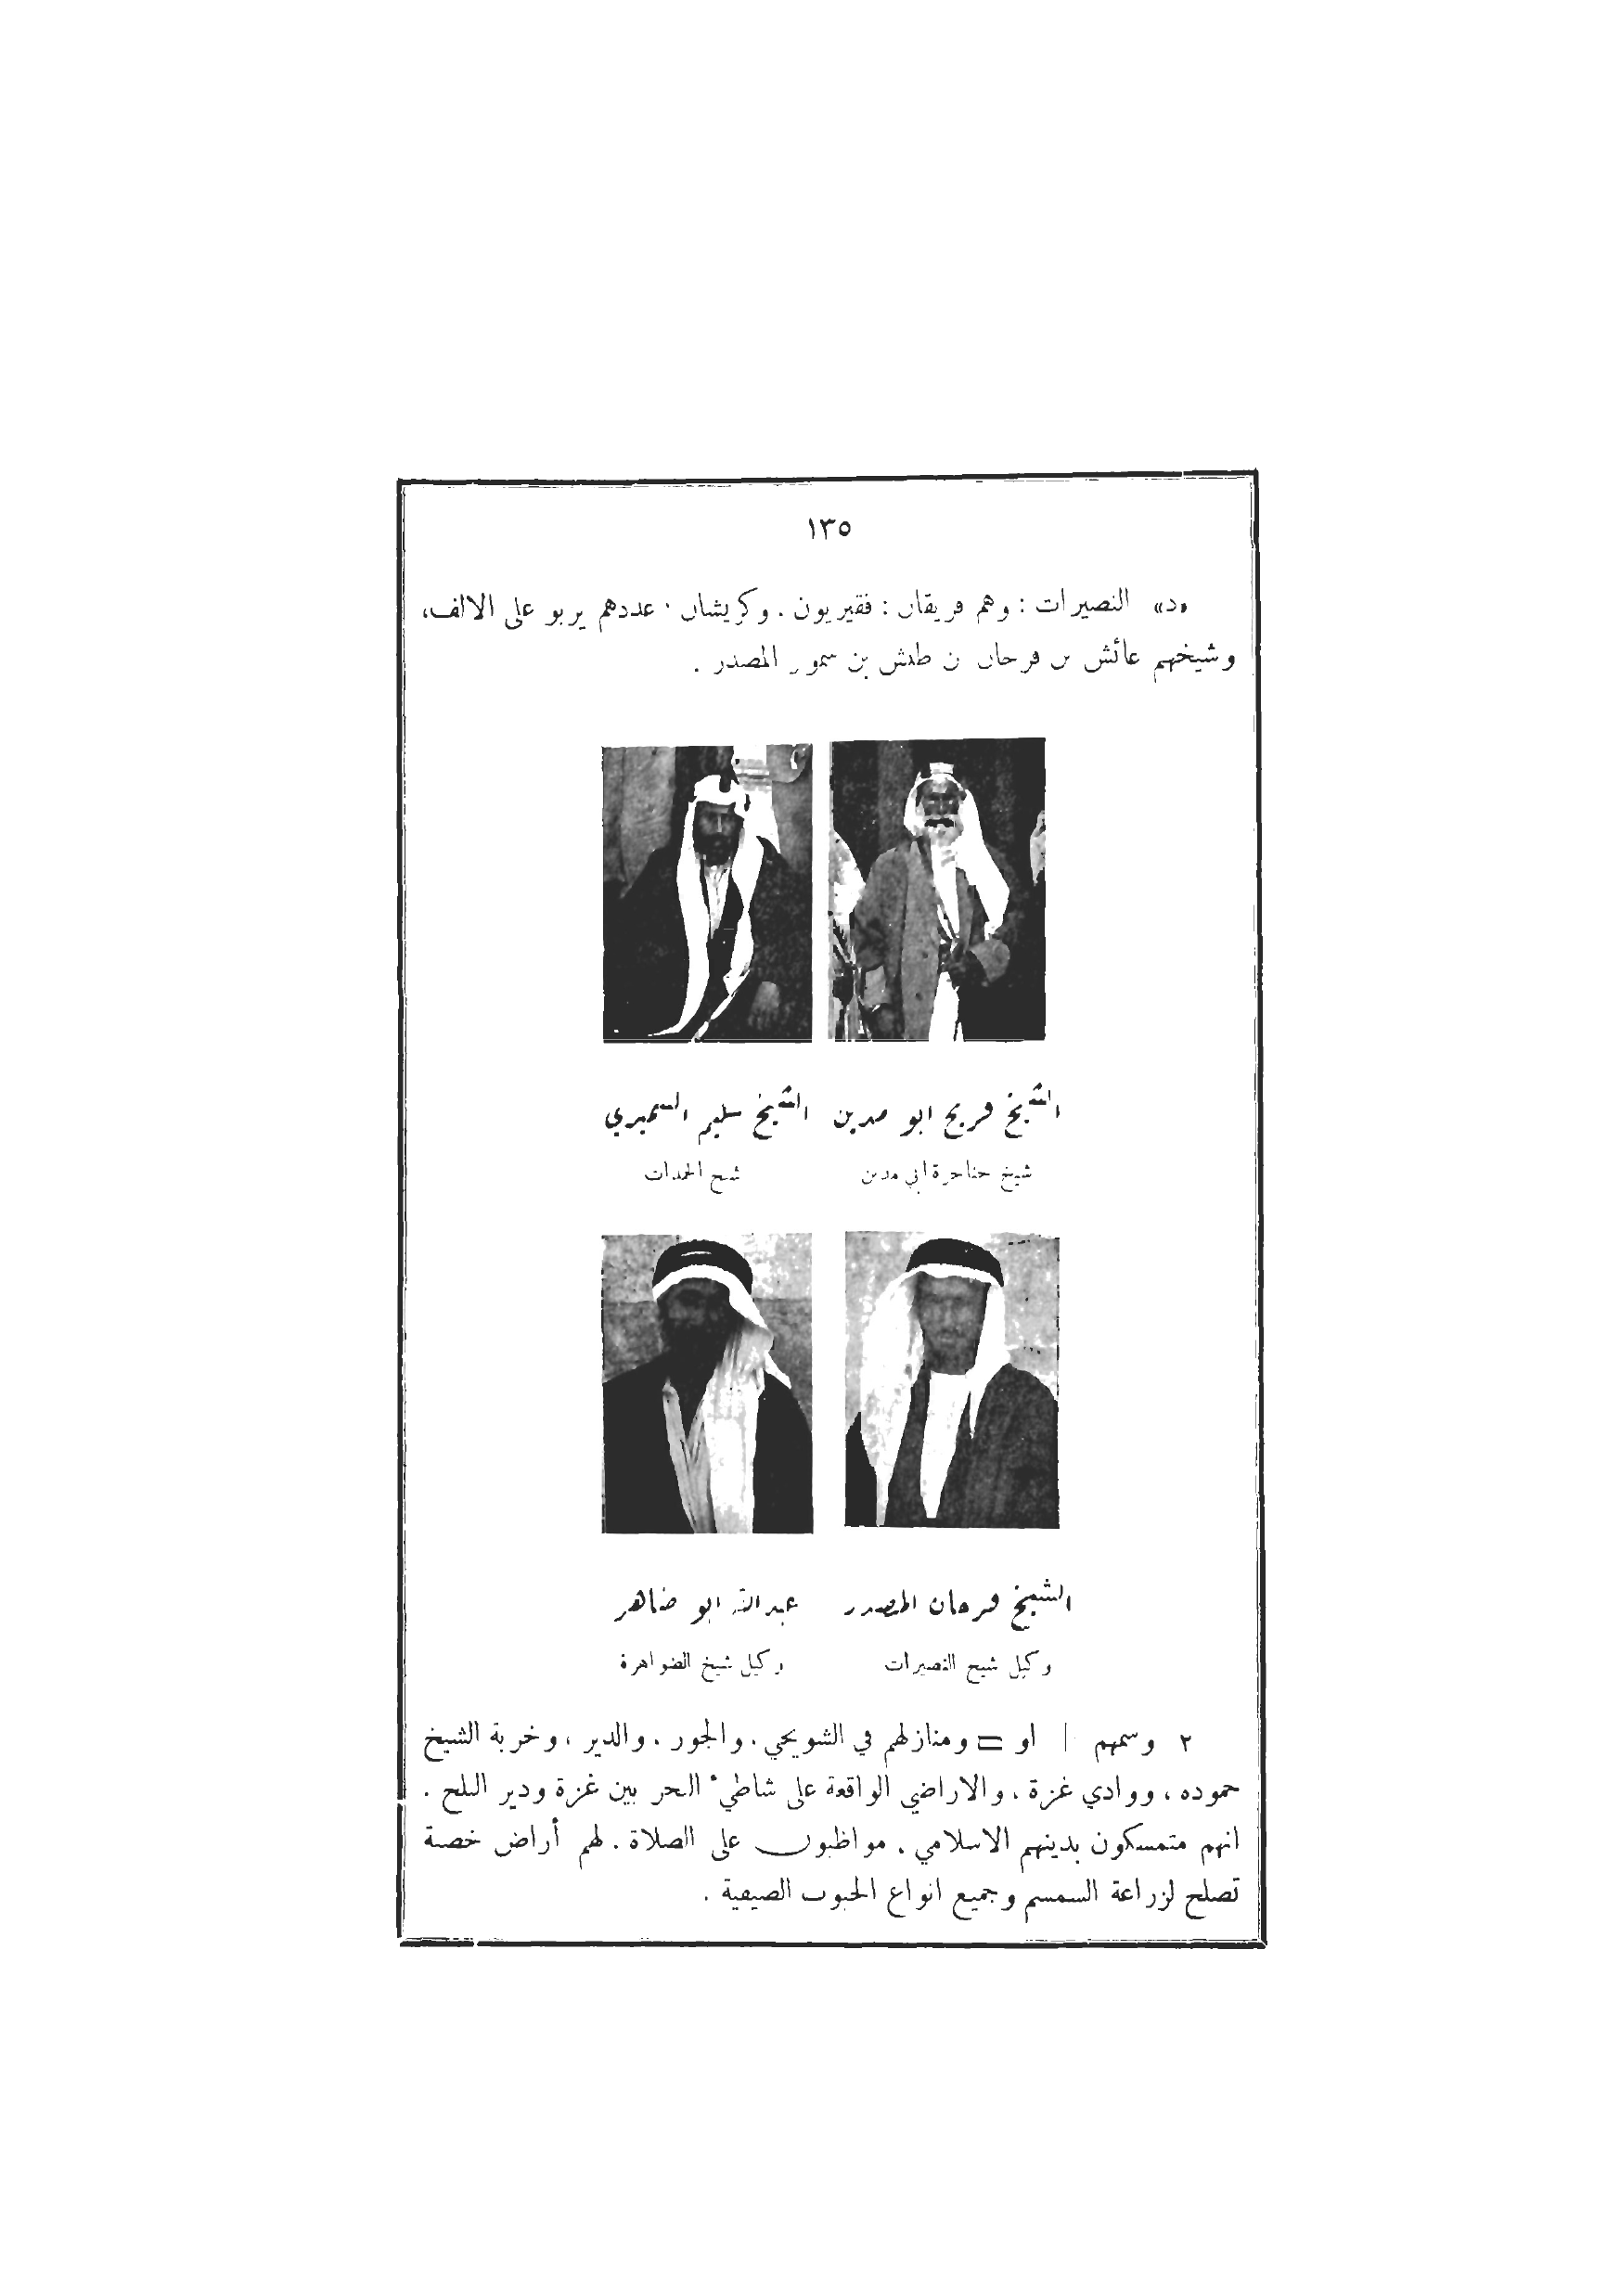 ١٣٥
«د» النصيرات : وهم فريقان : فقيريون . وكريشان . عددهم يربو على الالف،
وشيخهم عائش بن فرحان بن طش بن سمور المصدر .
الشيخ فريح ابو مدين
الشيخ سليم السميري
شيخ حناجرة ابي مدين
شيخ الحمدات
الشيخ فرحان المصدر
عبدالله ابو ضاهر
وكيل شيخ النصيرات
وكيل شيخ الضواهرة
٢ وسمهم | او = ومنازلهم في الشويحي ، والجور ، والدير ، وخربة الشيخ
حموده ، ووادي غزة ، والاراضي الواقعة على شاطيء البحر بين غزة ودير البلح .
انهم متمسكون بدينهم الاسلامي . مواظبون على الصلاة . لهم أراض خصبة
تصلح لزراعة السمسم وجميع انواع الحبوب الصيفية .